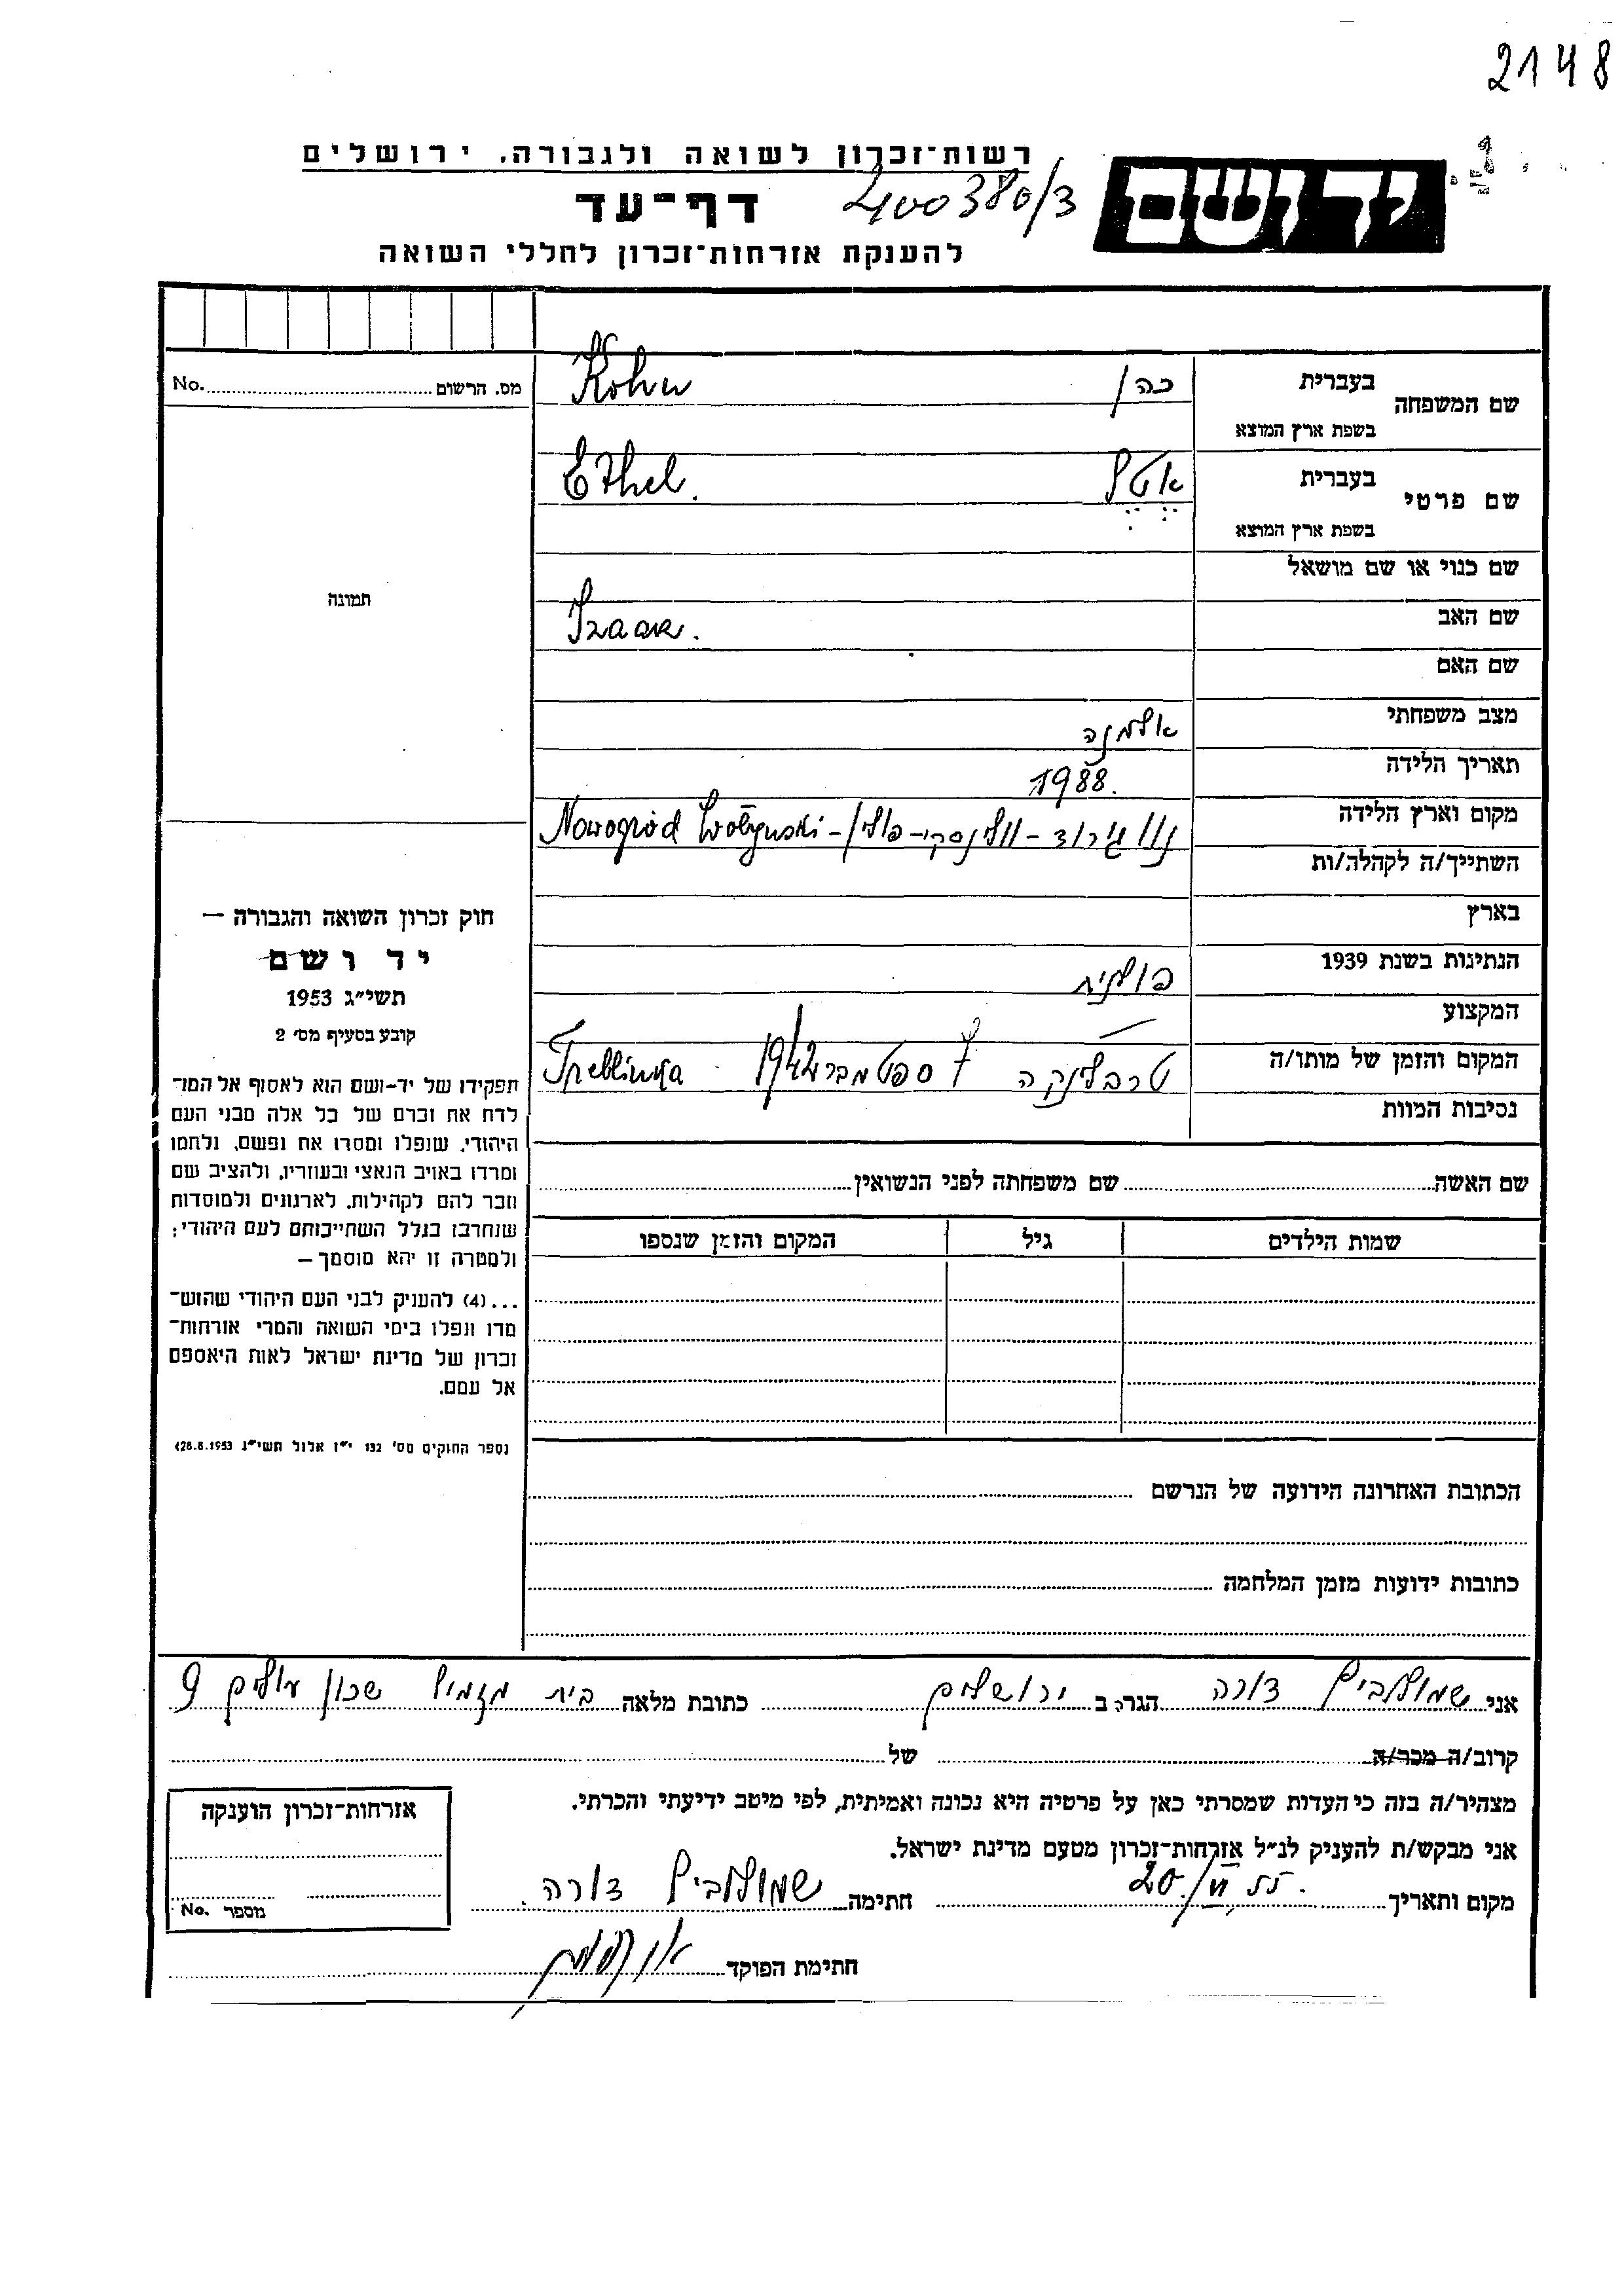 2148
רשות־זכרון לשואה ולגבורה, ירושלים
יד ושם
דף־עד 400380/3
להענקת אזרחות־זכרון לחללי השואה
שם המשפחה בעברית כהן Kohn
בשפת ארץ המוצא
שם פרטי בעברית אטל Ethel.
בשפת ארץ המוצא
שם כנוי או שם מושאל
שם האב Izaak.
שם האם
מצב משפחתי אלמנה
תאריך הלידה 1988.
מקום וארץ הלידה נווגירוד - וולינסקי - פולין - Nowogród Wołyński
השתייך/ה לקהלה/ות
בארץ
הנתינות בשנת 1939 פולנית
המקצוע —
המקום והזמן של מותו/ה טרבלינקה 7 ספטמבר 1942 Treblinka
נסיבות המוות
מס. הרשום No.
תמונה
חוק זכרון השואה והגבורה —
יד ושם
תשי״ג 1953
קובע בסעיף מס׳ 2
תפקידו של יד-ושם הוא לאסוף אל המו־
לדת את זכרם של כל אלה מבני העם
היהודי, שנפלו ומסרו את נפשם, נלחמו
ומרדו באויב הנאצי ובעוזריו, ולהציב שם
וזכר להם לקהילות, לארגונים ולמוסדות
שנחרבו בגלל השתייכותם לעם היהודי;
ולמטרה זו יהא מוסמך —
...(4) להעניק לבני העם היהודי שהוש־
מדו ונפלו בימי השואה והמרי אזרחות־
זכרון של מדינת ישראל לאות היאספם
אל עמם.
(ספר החוקים מס׳ 132 י״ז אלול תשי״ג 28.8.1953)
שם האשה שם משפחתה לפני הנשואין
שמות הילדים גיל המקום והזמן שנספו
הכתובת האחרונה הידועה של הנרשם
כתובות ידועות מזמן המלחמה
אני שמולביץ דורה הגר/ה ב ירושלים כתובת מלאה בית מזמיל שכון עולים 9
קרוב/ה מכר/ה של
מצהיר/ה בזה כי העדות שמסרתי כאן על פרטיה היא נכונה ואמיתית, לפי מיטב ידיעתי והכרתי.
אני מבקש/ת להעניק לנ״ל אזרחות־זכרון מטעם מדינת ישראל.
מקום ותאריך 20/VI 55. חתימה שמולביץ דורה.
חתימת הפוקד
אזרחות־זכרון הוענקה
מספר No.